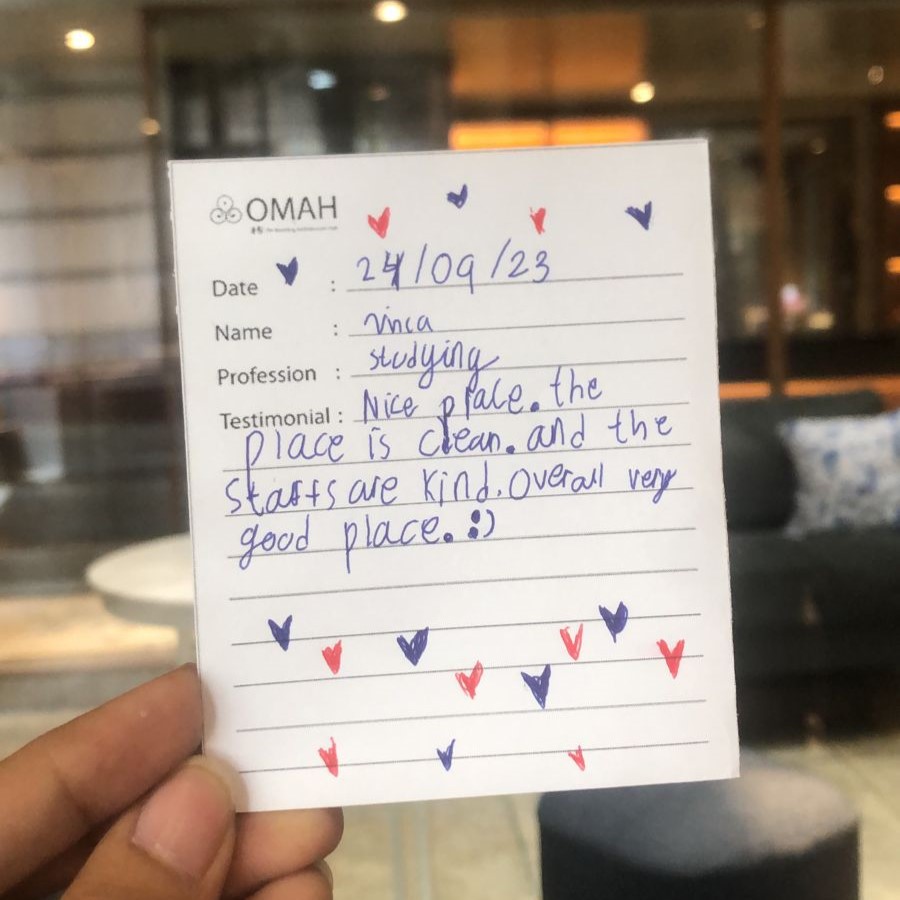 OMAH
Date : 24/09/23
Name : Vinca
Profession : studying
Testimonial : Nice place. the
place is clean. and the
Staffs are kind. Overall very
good place. :)